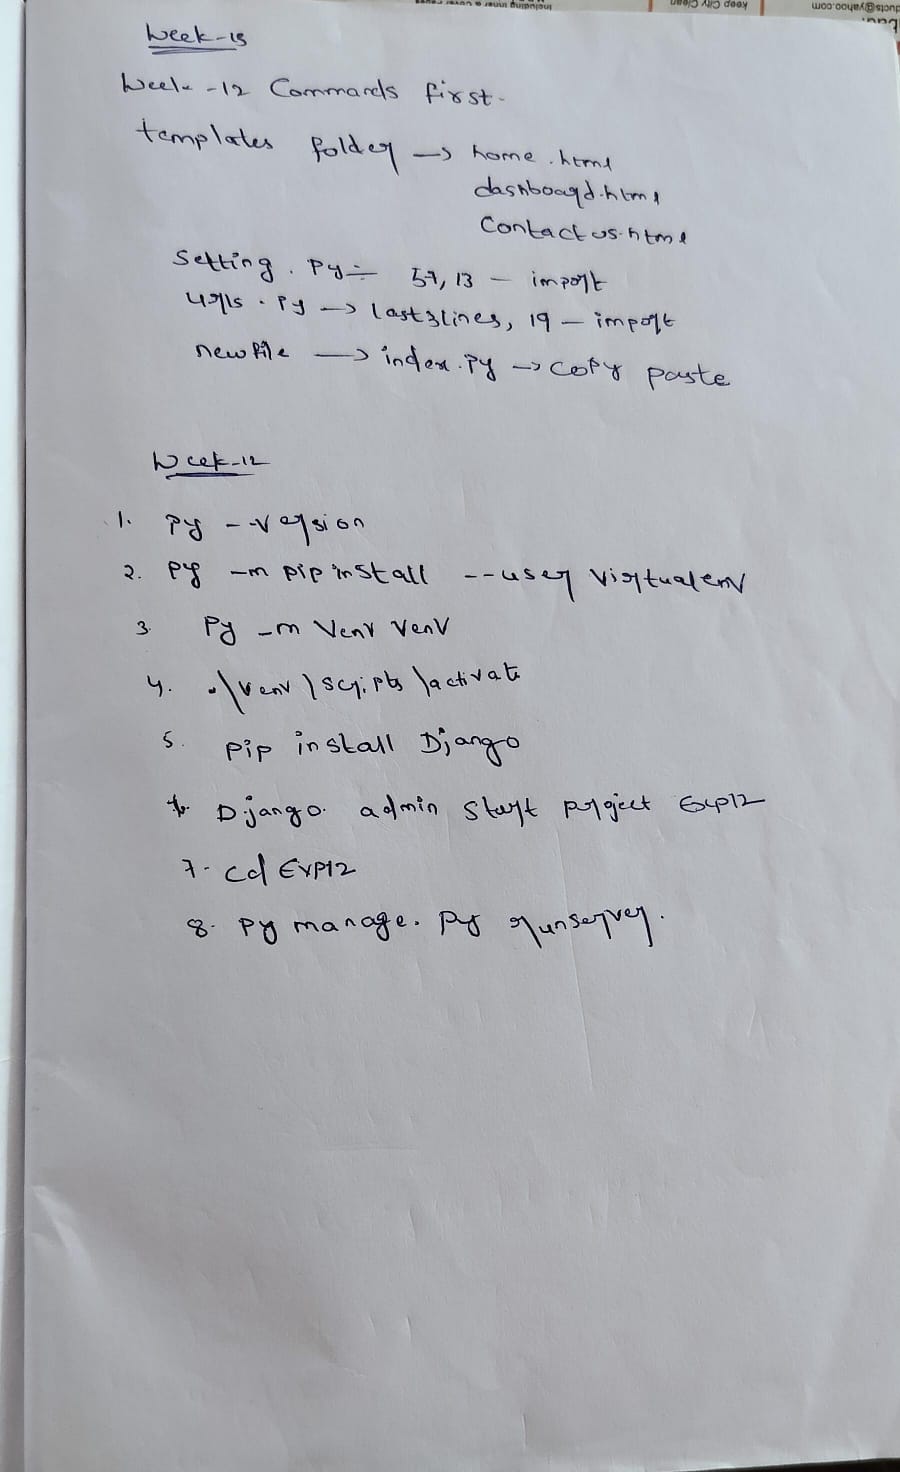 Including inner & cover
Keep City Clean
ducts@yahoo.com
Week-13
Week-12 Commands first.
templates folder → home.html
dashboard.html
Contactus.html
Setting.py÷ 57, 13 – import
urls.py → last 3 lines, 19 – import
new file → index.py → copy paste
Week-12
1. py --version
2. py -m pip install --user virtualenv
3. Py -m Venv Venv
4. .\venv\scripts\activate
5. pip install Django
6. Django admin start project Exp12
7. cd Exp12
8. py manage.py runserver.